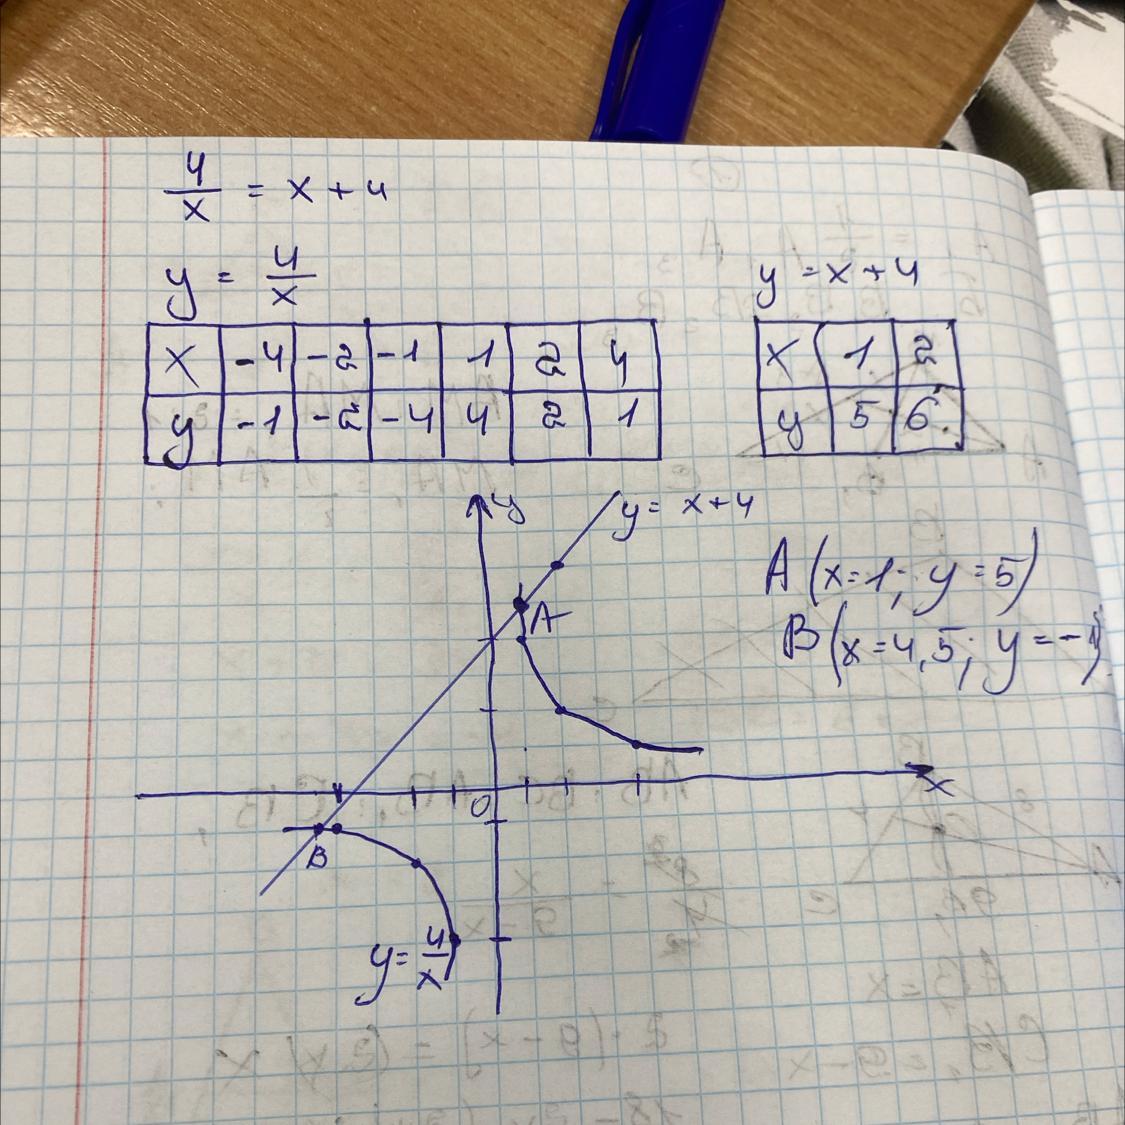 4/x = x + 4
y = 4/x
y = x + 4
x -4 -2 -1 1 2 4
y -1 -2 -4 4 2 1
x 1 2
y 5 6
y
y = x+4
A (x=1; y=5)
A
B (x=4,5; y=-1)
x
0
B
y = 4/x